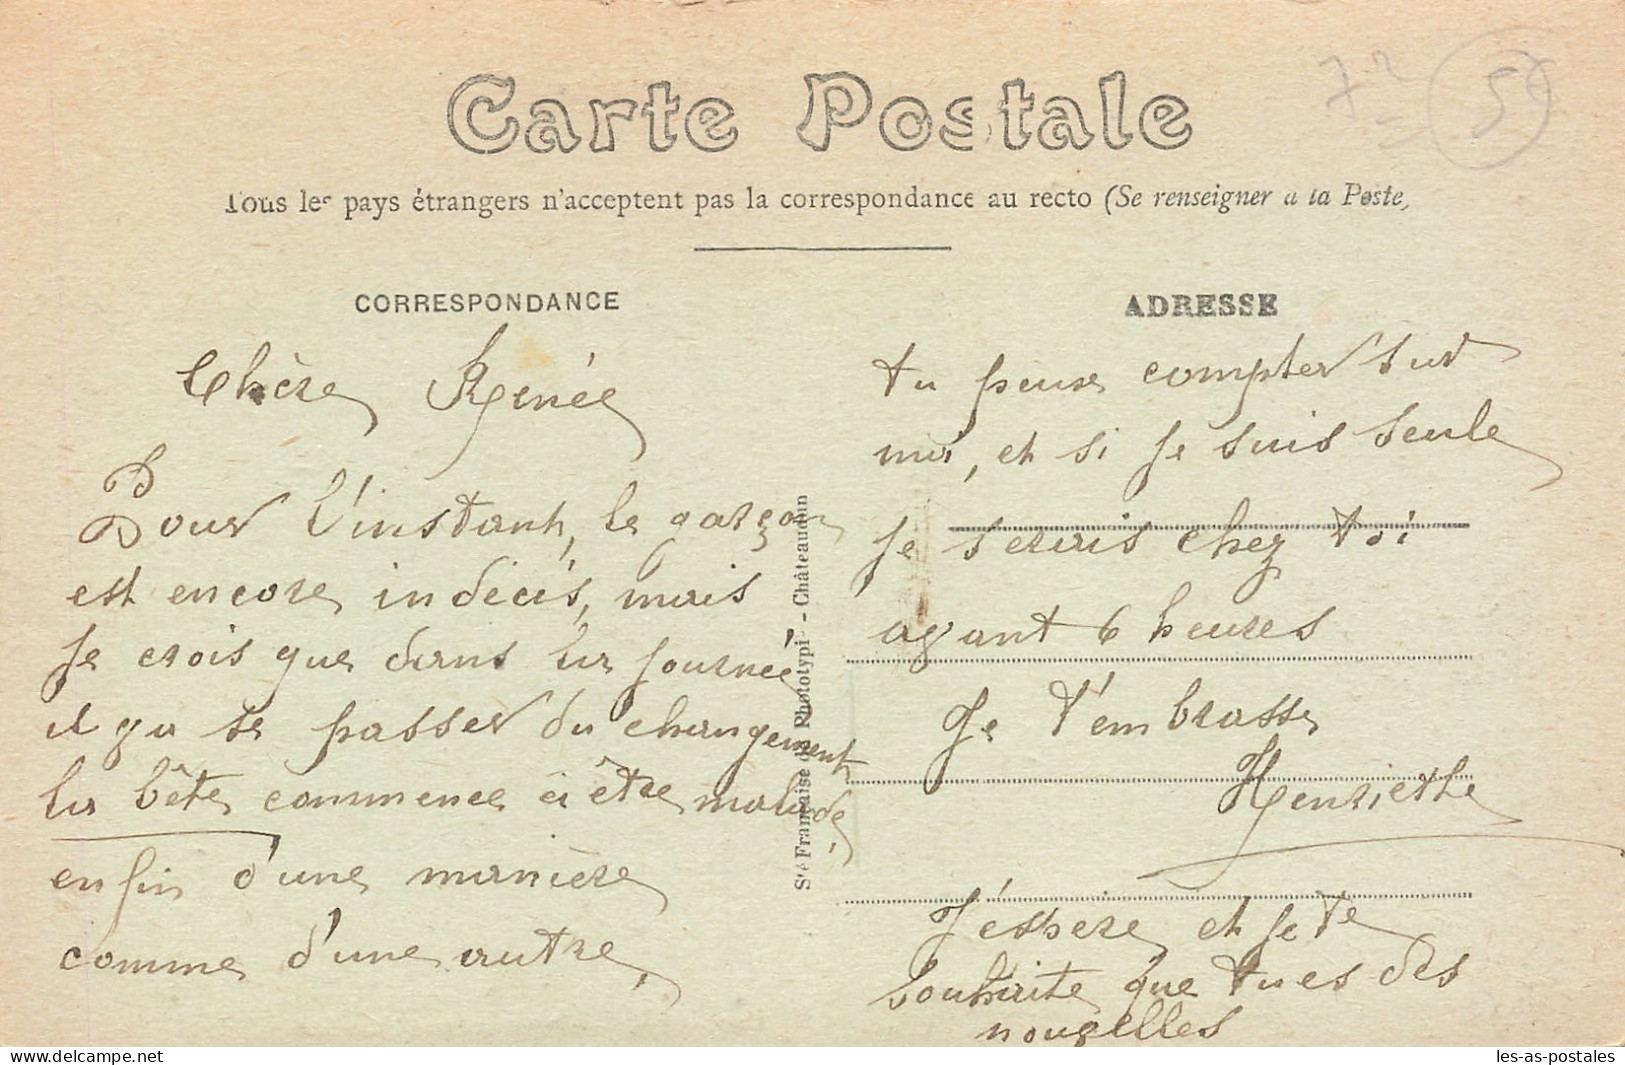 Carte Postale
Tous les pays étrangers n'acceptent pas la correspondance au recto (Se renseigner à la Poste)
72
5€
CORRESPONDANCE
Chère Renée
Pour l'instant, le garçon
est encore indécis, mais
je crois que dans la journée
il va se passer du changement
la bête commence à être malade,
enfin d'une manière
comme d'une autre,
Sté Française de Phototypie - Châteaudun
ADRESSE
tu peux compter sur
moi, et si je suis seule
je serais chez toi
avant 6 heures
Je t'embrasse
Henriette
J'éspère et je te
souhaite que tu es des
nouvelles
delcampe.net
les-as-postales